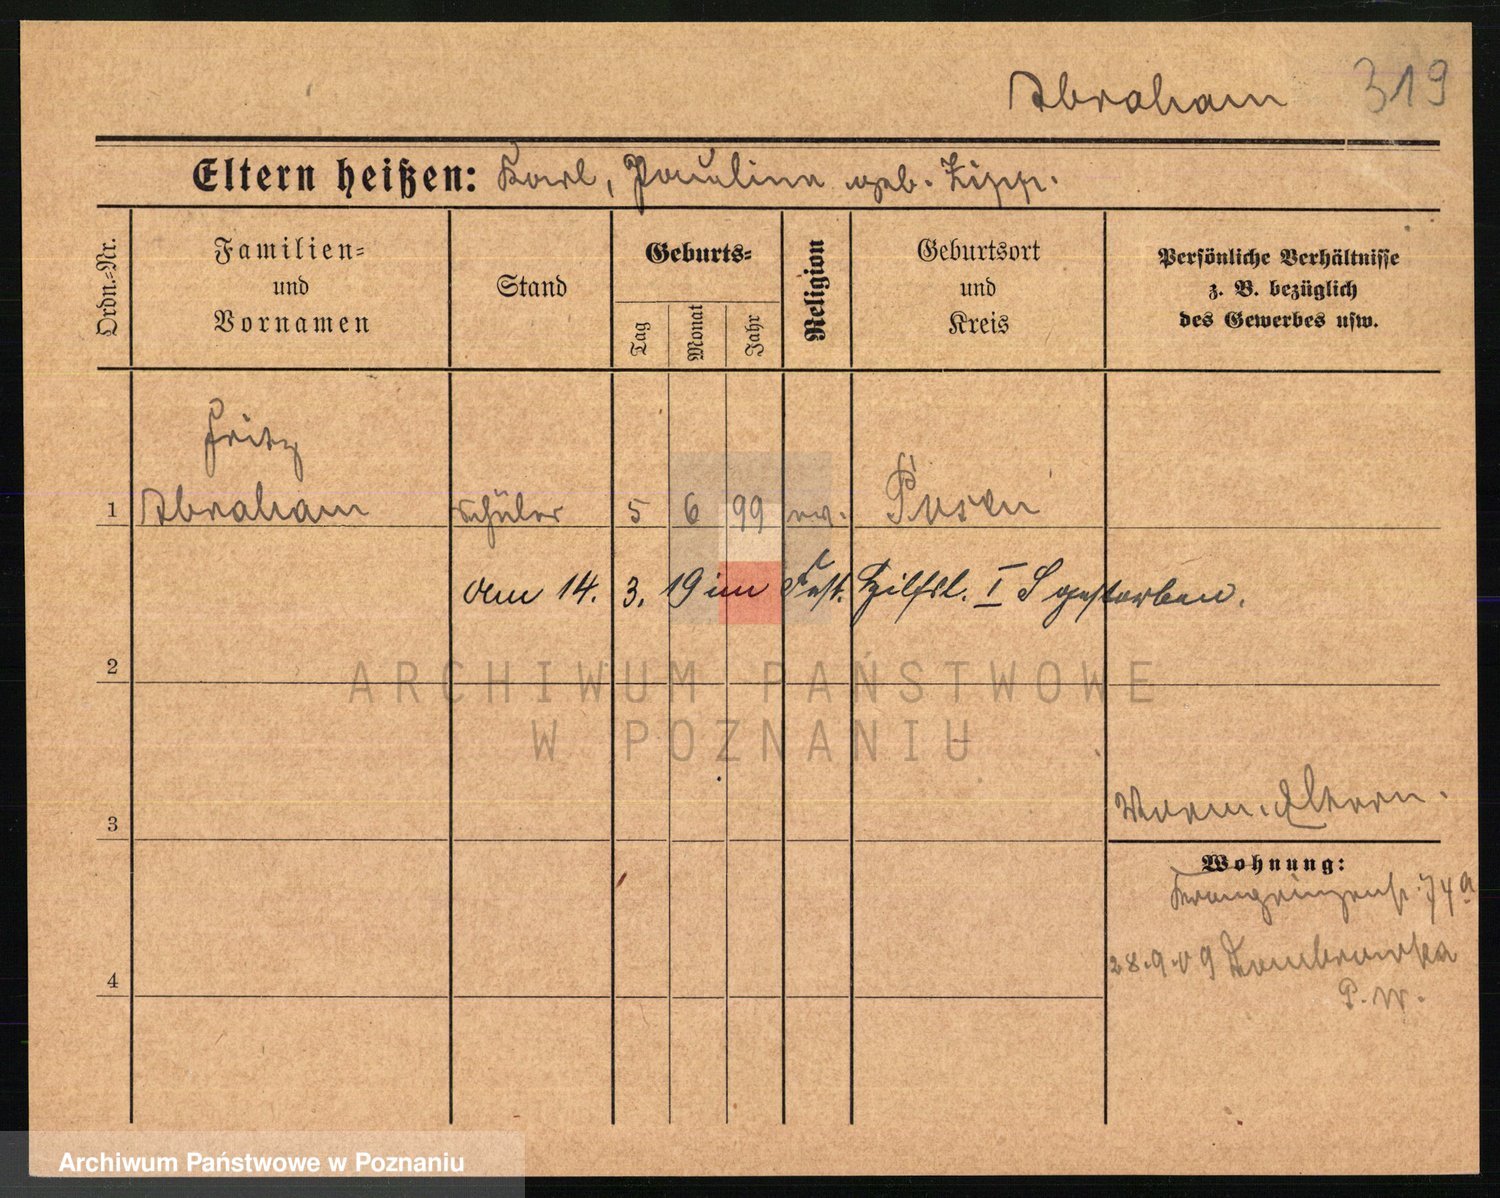 Abraham 319
Eltern heißen: Karl, Paulina geb. Zipp.
Ordn.-Nr.
Familien-
und
Vornamen
Stand
Geburts-
Tag
Monat
Jahr
Religion
Geburtsort
und
Kreis
Persönliche Verhältnisse
z. B. bezüglich
des Gewerbes usw.
Fritz
1 Abraham Schüler 5 6 99 ev. Posen
am 14. 3. 19 im Fest. Hilfsl. I S gestorben.
2
3
Eltern.
Wohnung:
Kronprinzenstr. 74a
4
28.9.09 Dombrowska
P. W.
ARCHIWUM PAŃSTWOWE
W POZNANIU
Archiwum Państwowe w Poznaniu